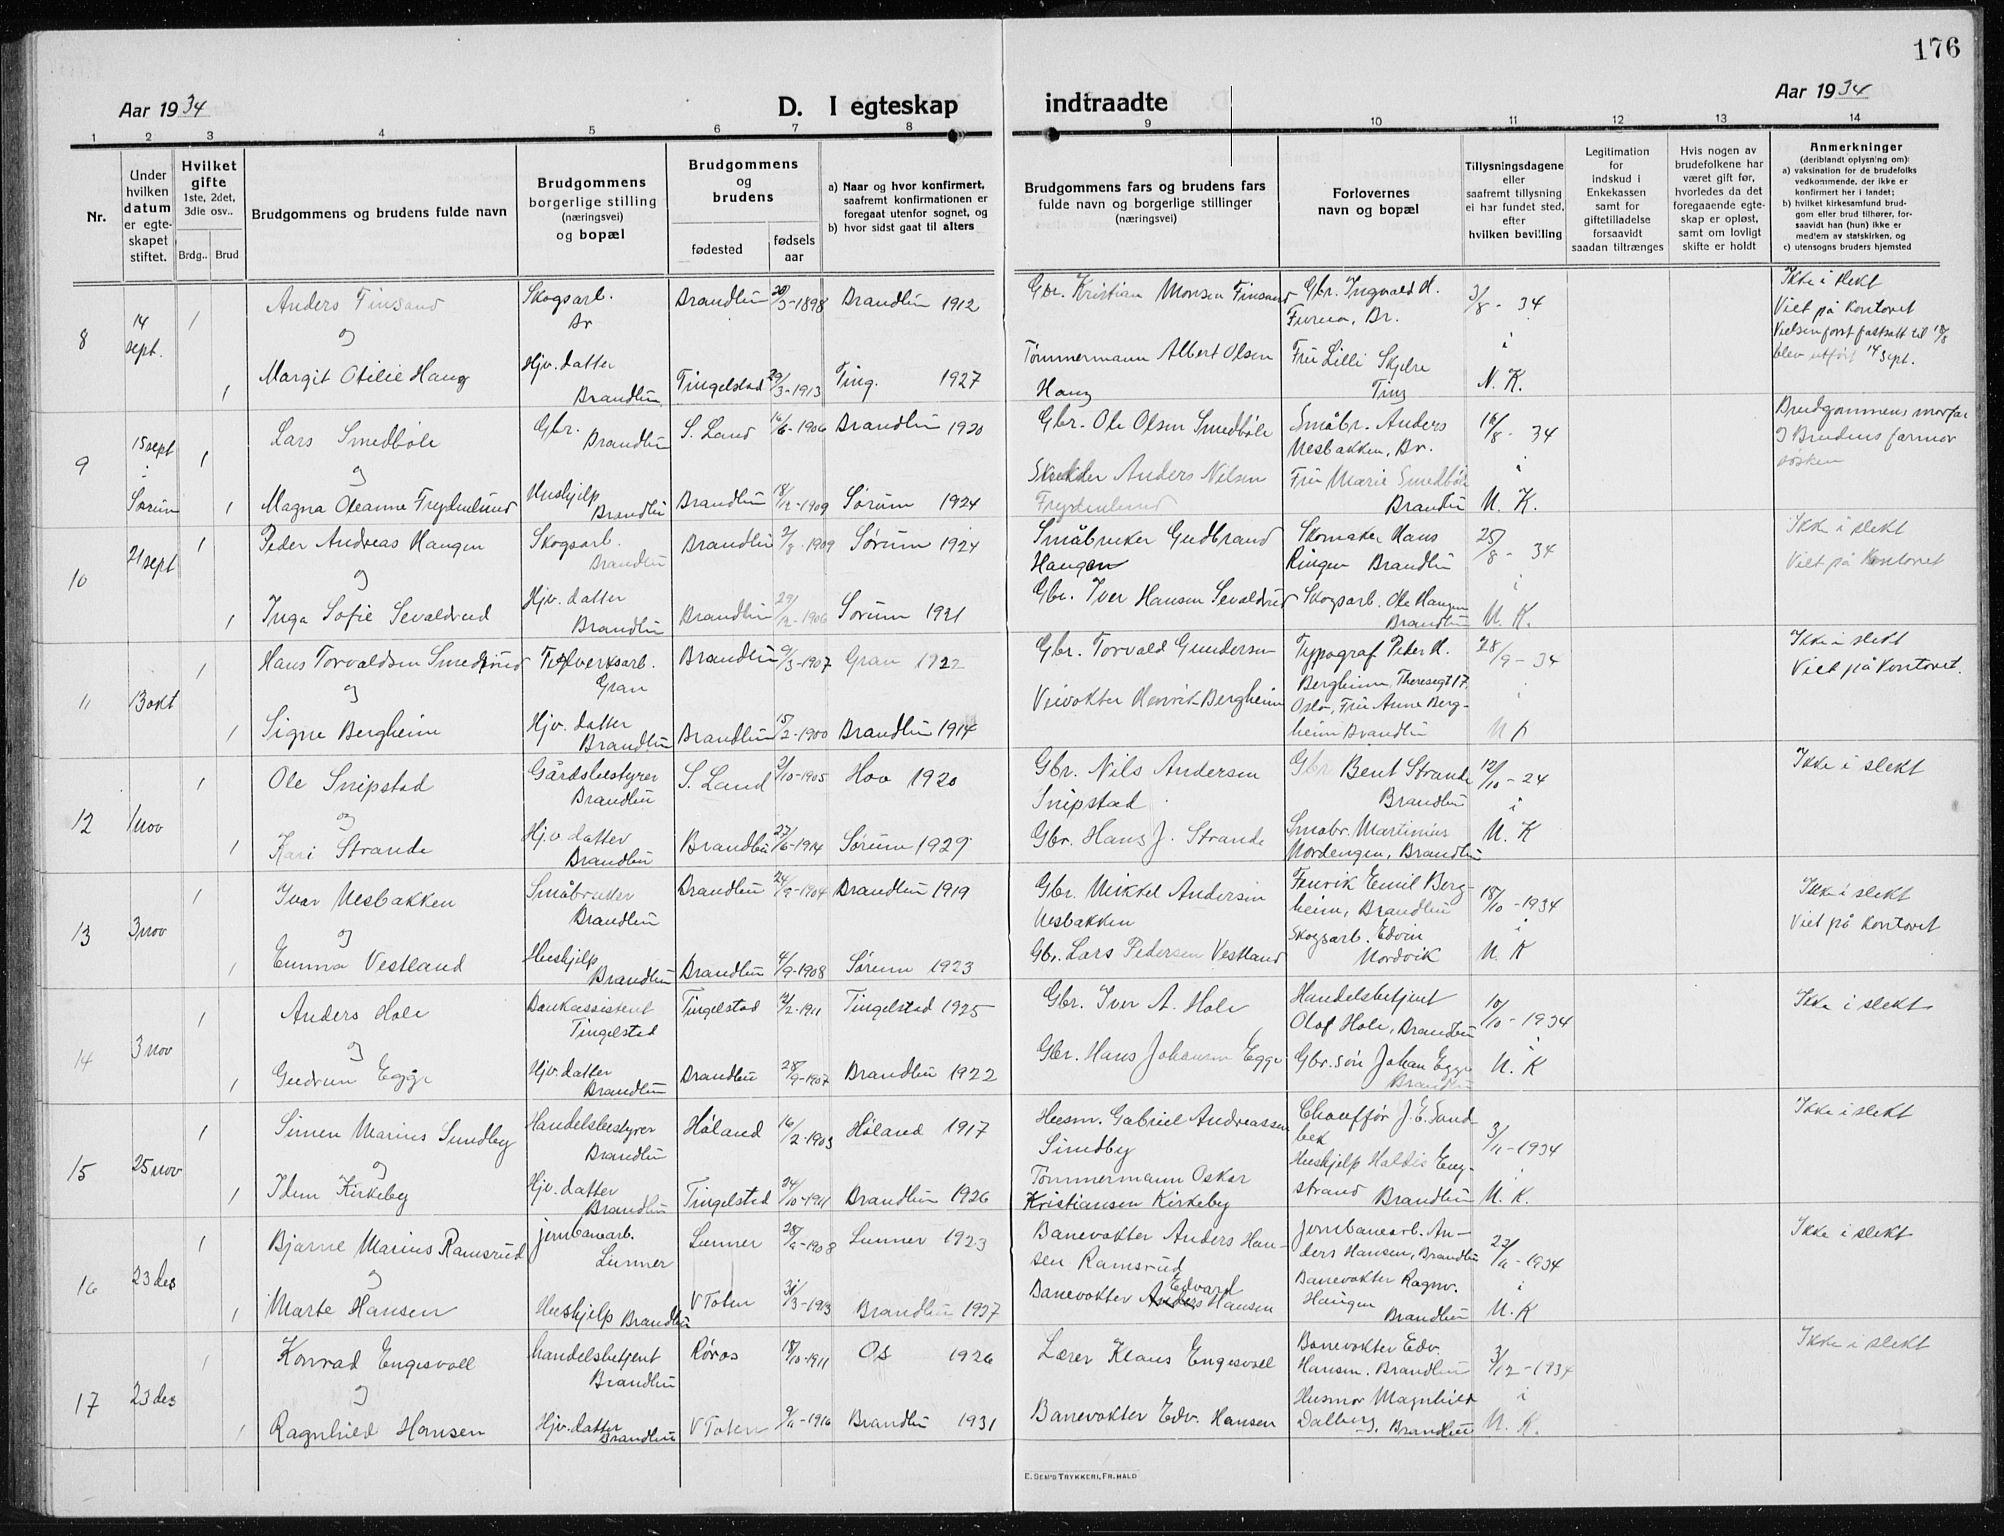 176
Aar 1934
D. I egteskap indtraadte
Aar 1934
1 2 3 4 5 6 7 8 9 10 11 12 13 14
Nr.
Under hvilken datum er egteskapet stiftet.
Hvilket gifte
1ste, 2det, 3die osv..
Brdg.. Brud
Brudgommens og brudens fulde navn
Brudgommens borgerlige stilling (næringsvei) og bopæl
Brudgommens og brudens
fødested
fødsels aar
a) Naar og hvor konfirmert, saafremt konfirmationen er foregaat utenfor sognet, og
b) hvor sidst gaat til alters
Brudgommens fars og brudens fars fulde navn og borgerlige stillinger (næringsvei)
Forlovernes navn og bopæl
Tillysningsdagene eller saafremt tillysning ei har fundet sted, efter hvilken bevilling
Legitimation for indskud i Enkekassen samt for giftetilladelse forsaavidt saadan tiltrænges
Hvis nogen av brudefolkene har været gift før, hvorledes da det foregaaende egteskap er opløst, samt om lovligt skifte er holdt
Anmerkninger
(deriblandt oplysning om):
a) vaksination for de brudefolks vedkommende, der ikke er konfirmert her i landet;
b) hvilket kirkesamfund brudgom eller brud tilhører, forsaavidt han (hun) ikke er medlem av statskirken, og
c) utensogns bruders hjemsted
8 14 sept. 1 Anders Finsand Skogsarb. Br Brandbu 20/3-1898 Brandbu 1912 Gbr. Kristian Monsen Finsand Gbr. Ingvald H. Furua, Br. 3/8 - 34 Ikke i slekt
og i Viet på kontoret
Vielsen først fastsatt til 18/8 blev utført 14 sept.
1 Margit Otilie Haug Hjv. datter Brandbu Tingelstad 29/3-1913 Ting. 1927 Tømmermann Albert Olsen Haug Fru Lilli Skjelre Ting N. K.
9 15 sept i Sørum 1 Lars Smedbøle Gbr. Brandbu S. Land 16/6-1906 Brandbu 1920 Gbr. Ole Olsen Smedbøle Småbr. Anders Nesbakken, Br. 16/8 - 34 Brudgommens morfar og Brudens farmor søsken
og i
1 Magna Oleanne Frydenlund Hushjelp Brandbu Brandbu 18/12-1909 Sørum 1924 Anders Nilsen Frydenlund Fru Marie Smedbøle Brandbu N. K.
10 21 sept 1 Peder Andreas Haugen Skogsarb. Brandbu Brandbu 2/8-1909 Sørum 1924 Småbruker Gudbrand Haugen Skomaker Hans Ringen Brandbu 25/8 - 34 Ikke i slekt
og i Viet på kontoret
1 Inga Sofie Sevaldrud Hjv. datter Brandbu Brandbu 29/12-1906 Sørum 1921 Gbr. Iver Hansen Sevaldrud Skogsarb. Ole Haugen Brandbu N. K.
11 13 okt 1 Hans Torvaldsen Gran Brandbu 9/3-1907 Gran 1922 Gbr. Torvald Gundersen Typograf Peder H. Bergheim, Theresegt 17. Oslo, Fru Anne Bergheim Brandbu 28/9 - 34 Ikke i slekt
og i Viet på kontoret.
1 Signe Bergheim Hjv. datter Brandbu Brandbu 15/2-1900 Brandbu 1914 Veivokter Henrik Bergheim N K
12 1 nov 1 Ole Snipstad Gårdsbestyrer Brandbu S. Land 9/10-1905 Hov 1920 Gbr. Nils Andersen Snipstad Gbr Bent Strande Brandbu 12/10 - 24 Ikke i slekt
og i
1 Kari Strande Hjv. datter Brandbu Brandbu 27/6-1914 Sørum 1929 Gbr. Hans J. Strande Småbr. Martinius Nordengen, Brandbu N. K
13 3 nov 1 Ivar Nesbakken Småbruker Brandbu Brandbu 24/9-1904 Brandbu 1919 Gbr. Mikkel Andersen Nesbakken Fenrik Emil Bergheim, Brandbu 18/10 - 1934 Ikke i slekt
og i Viet på kontoret
1 Emma Vestland Hushjelp Brandbu Brandbu 4/9-1908 Sørum 1923 Gbr. Lars Pedersen Vestland Skogsarb. Edvin Nordvik N. K
14 3 nov 1 Anders Hole Bankassistent Tingelstad Tingelstad 12/2-1911 Tingelstad 1925 Gbr. Iver A. Hole Handelsbetjent Olaf Hole, Brandbu 10/10 - 1934 Ikke i slekt
og i
1 Gudrun Egge Hjv. datter Brandbu Brandbu 28/9-1907 Brandbu 1922 Gbr. Hans Johansen Egge Gbr. søn Johan Egge Brandbu N. K
15 25 nov 1 Simen Marius Sundby Handelsbestyrer Brandbu Høland 16/2-1903 Høland 1917 Husm. Gabriel Andreassen Sundby Chauffør J. E. Sandbek 3/11 - 1934 Ikke i slekt
og i
1 Idun Kirkeby Hjv. datter Brandbu Tingelstad 24/10-1911 Brandbu 1926 Tømmermann Oskar Kristiansen Kirkeby Hushjelp Haldis Engstrand Brandbu N. K.
16 23 des 1 Bjarne Marius Ramsrud jernbanearb. Lunner Lunner 28/9-1908 Lunner 1923 Banevokter Anders Hansen Ramsrud Jernbanearb. Anders Hansen, Brandbu 23/11 - 1934 Ikke i slekt
og i
1 Marte Hansen Hushjelp Brandbu V Toten 31/3-1913 Brandbu 1927 Banevokter Edvard Hansen Banevokter Ragnv. Haugen Brandbu N. K
17 23 des 1 Konrad Engesvoll Handelsbetjent Brandbu Røros 18/10-1911 Os 1926 Lærer Klaus Engesvoll Banevokter Edv. Hansen. Brandbu 3/12 - 1934 Ikke i slekt
og i
1 Ragnhild Hansen Hjv. datter Brandbu V Toten 9/11-1916 Brandbu 1931 Banevokter Edv. Hansen Husmor Magnhild Dalberg, Brandbu N. K.
E. SEM'S TRYKKERI, FR.HALD